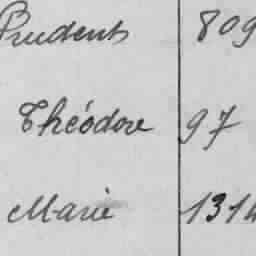 Prudent 809
Théodore 97
Marie 1314